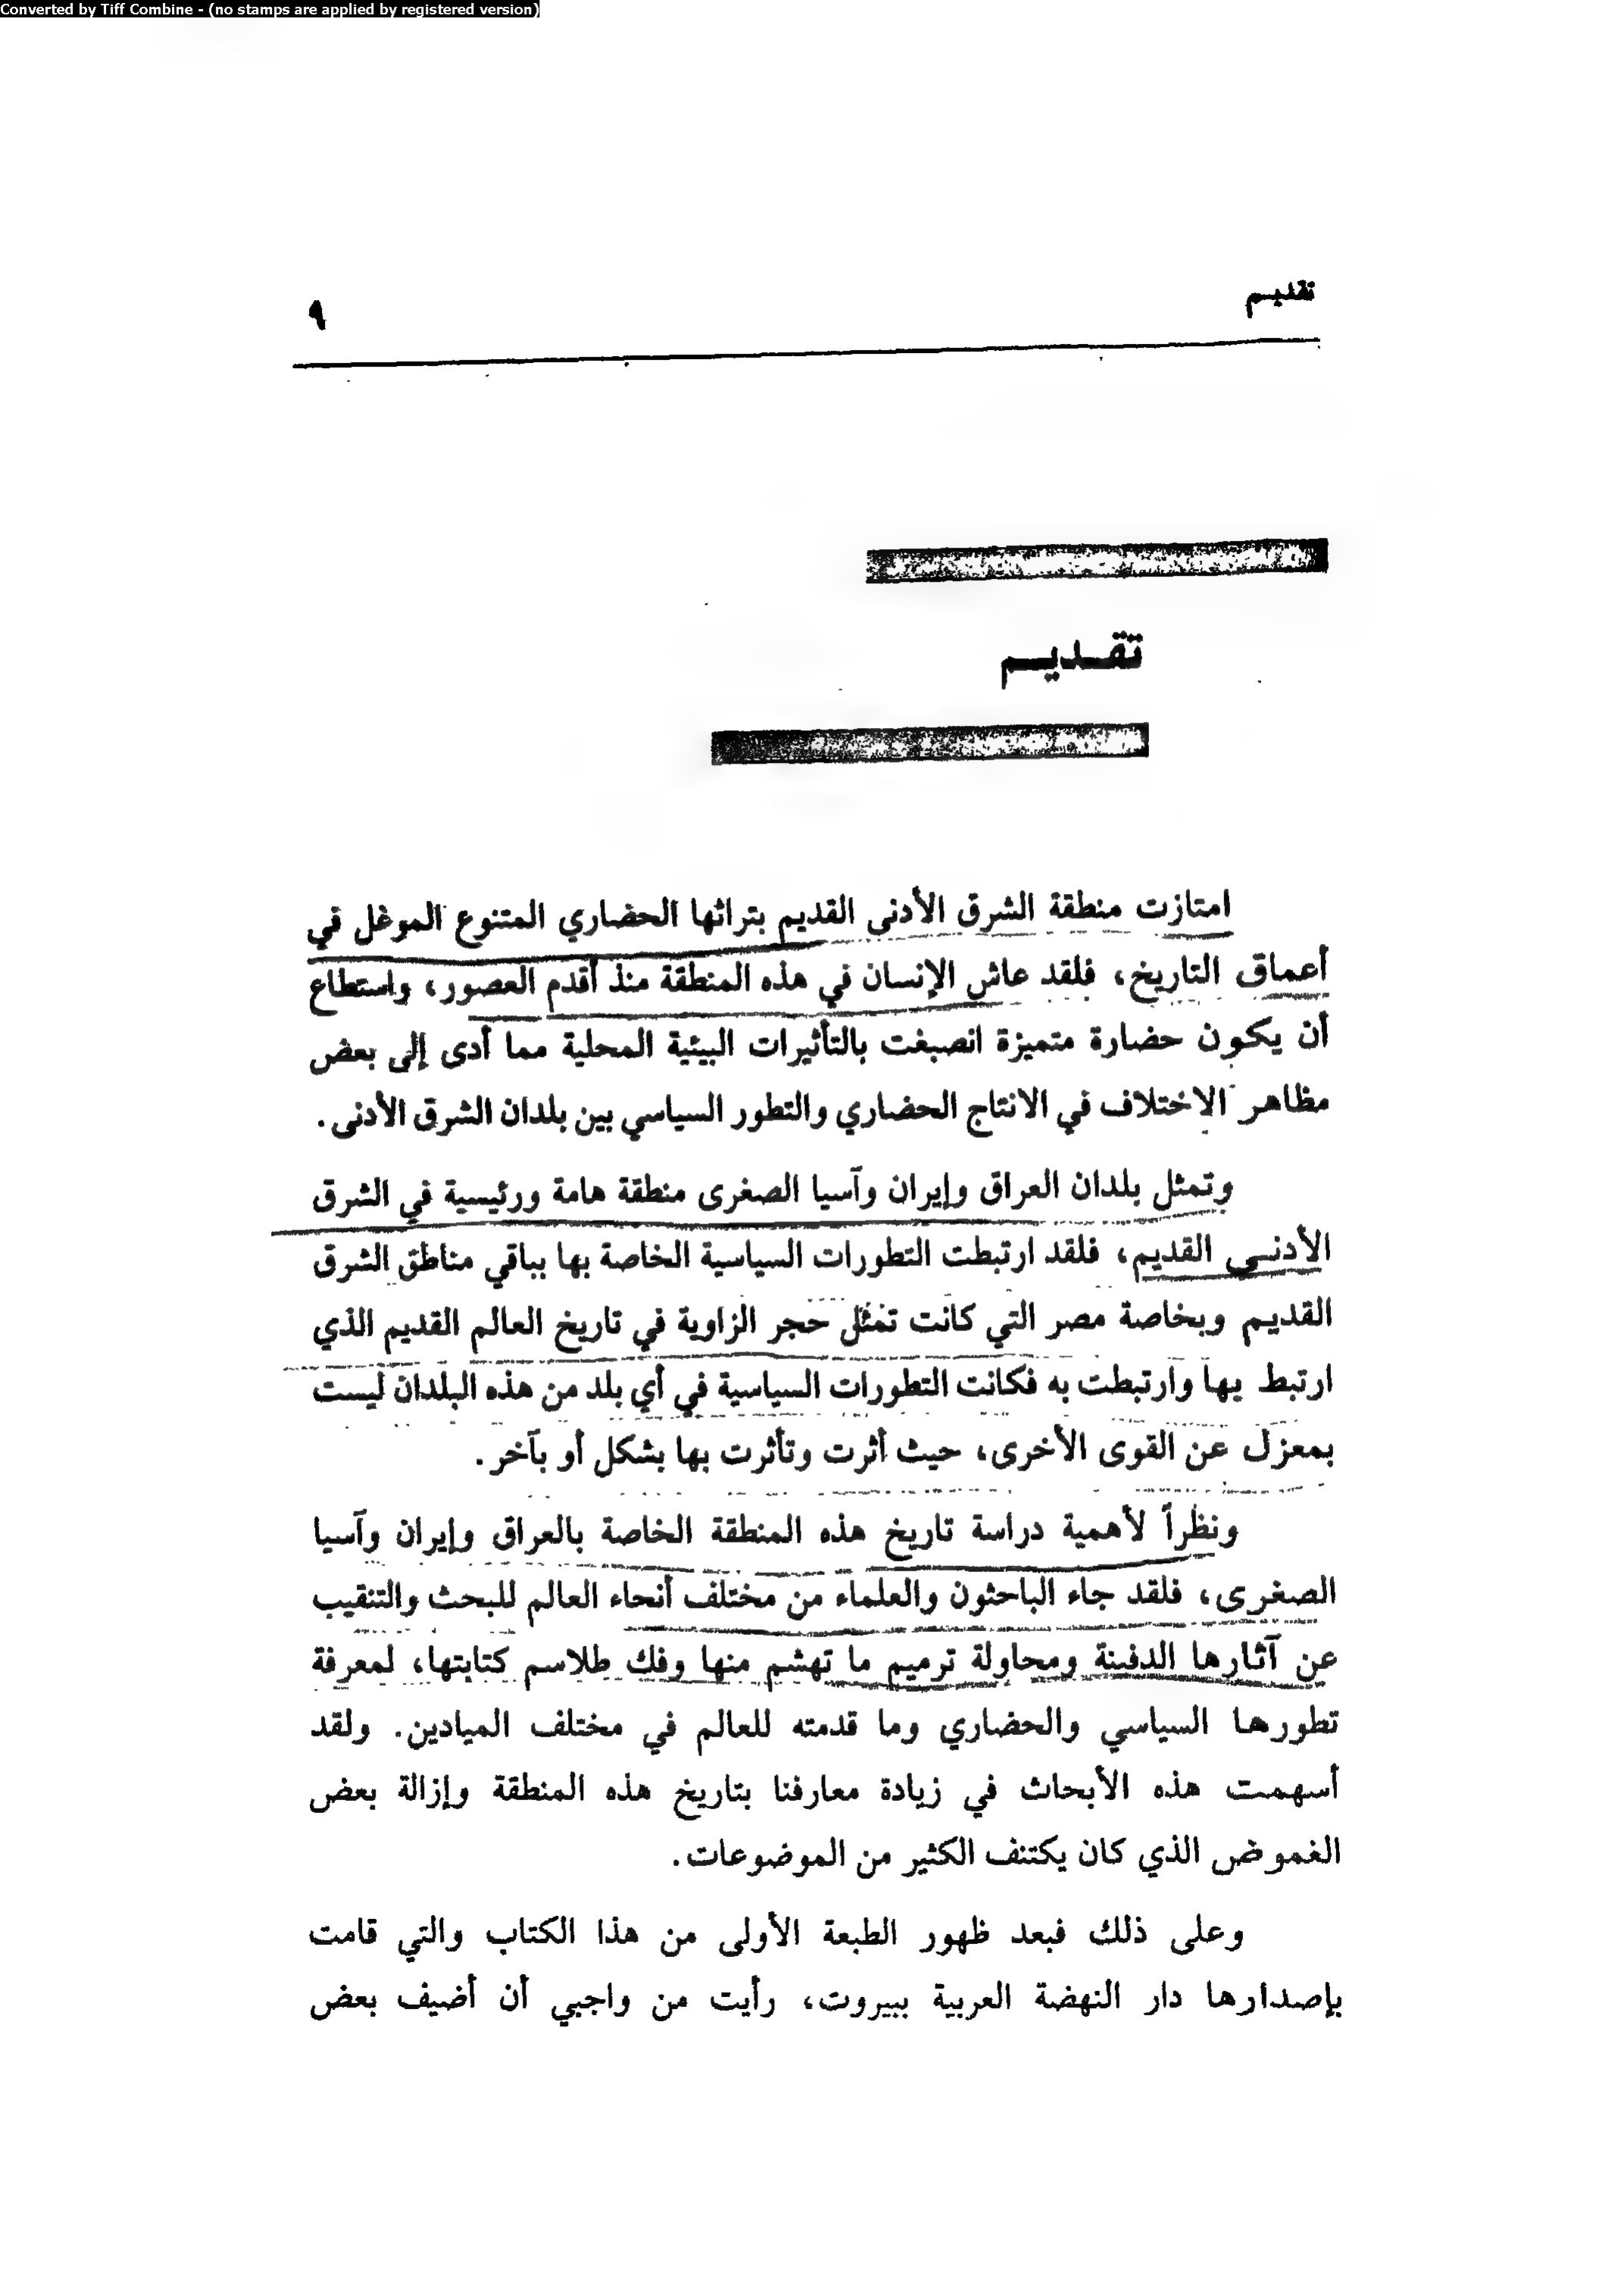 Converted by Tiff Combine - (no stamps are applied by registered version)
تقديم
٩
تقـديـم
امتازت منطقة الشرق الأدنى القديم بتراثها الحضاري المتنوع الموغل في
أعماق التاريخ، فلقد عاش الإنسان في هذه المنطقة منذ أقدم العصور، واستطاع
أن يكون حضارة متميزة انصبغت بالتأثيرات البيئية المحلية مما أدى إلى بعض
مظاهر الاختلاف في الانتاج الحضاري والتطور السياسي بين بلدان الشرق الأدنى.
وتمثل بلدان العراق وإيران وآسيا الصغرى منطقة هامة ورئيسية في الشرق
الأدنـى القديم، فلقد ارتبطت التطورات السياسية الخاصة بها بباقي مناطق الشرق
القديم وبخاصة مصر التي كانت تمثل حجر الزاوية في تاريخ العالم القديم الذي
ارتبط بها وارتبطت به فكانت التطورات السياسية في أي بلد من هذه البلدان ليست
بمعزل عن القوى الأخرى، حيث أثرت وتأثرت بها بشكل أو بآخر.
ونظراً لأهمية دراسة تاريخ هذه المنطقة الخاصة بالعراق وإيران وآسيا
الصغرى، فلقد جاء الباحثون والعلماء من مختلف أنحاء العالم للبحث والتنقيب
عن آثارها الدفينة ومحاولة ترميم ما تهشم منها وفك طلاسم كتابتها، لمعرفة
تطورها السياسي والحضاري وما قدمته للعالم في مختلف الميادين. ولقد
أسهمت هذه الأبحاث في زيادة معارفنا بتاريخ هذه المنطقة وإزالة بعض
الغموض الذي كان يكتنف الكثير من الموضوعات.
وعلى ذلك فبعد ظهور الطبعة الأولى من هذا الكتاب والتي قامت
بإصدارها دار النهضة العربية ببيروت، رأيت من واجبي أن أضيف بعض